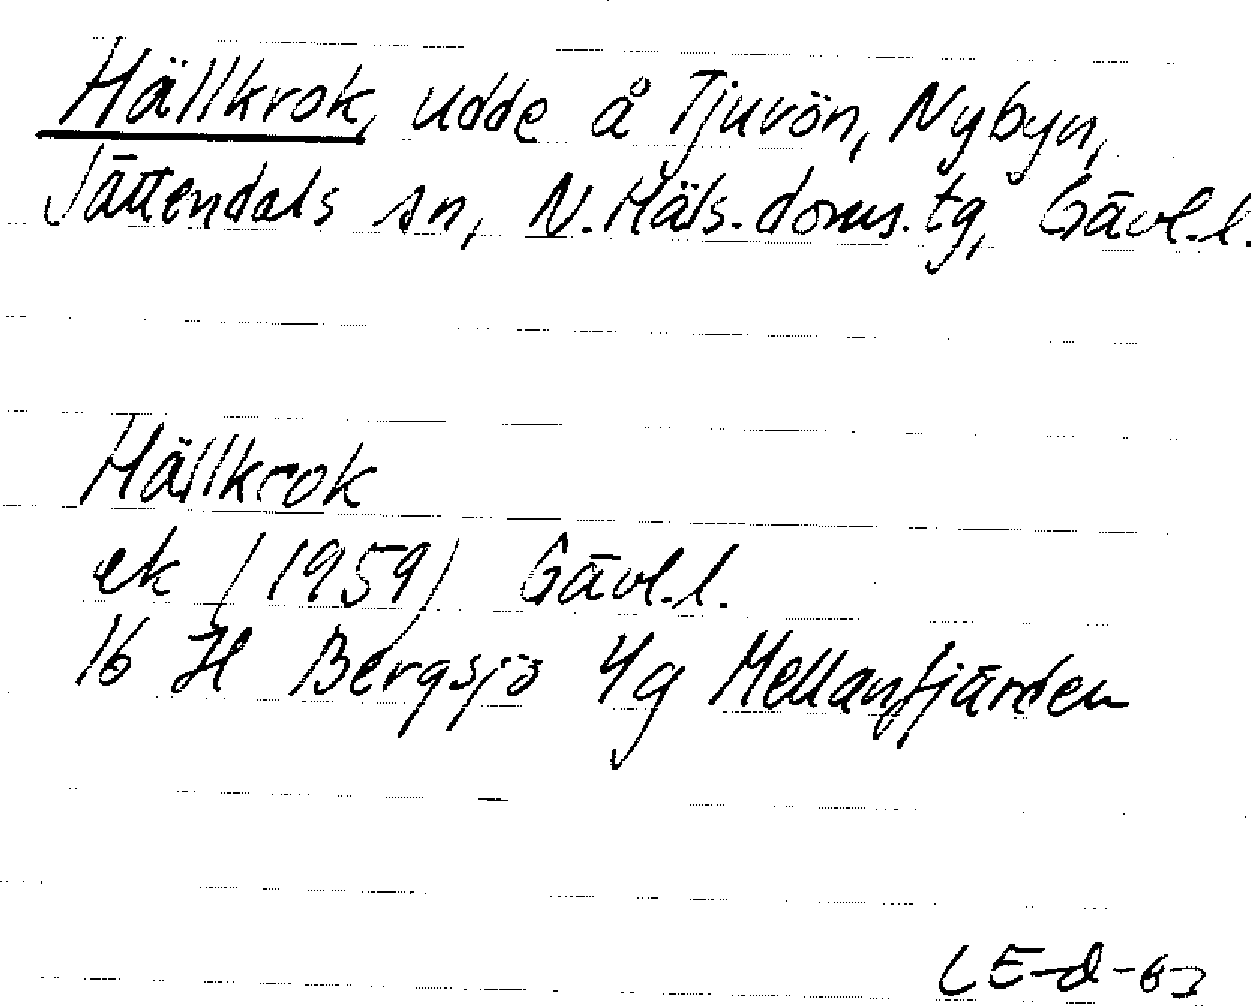 Hällkrok, udde å Tjuvön, Nybyn,
Jättendals sn, N. Häls. doms. tg, Gävl. l.
Hällkrok
ek (1959) Gävl. l.
16 H Bergsjö 4g Mellanfjärden